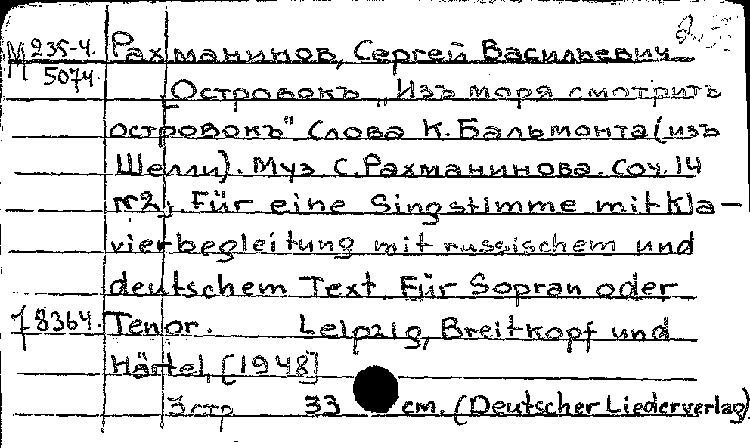 М 235-4. Рахманинов, Сергей Васильевич
5074.
[Островокъ „Изъ моря смотритъ
островокъ" Слова К. Бальмонта (изъ
Шелли). Муз С. Рахманинова. Соч. 14
№2]. Für eine Singstimme mit Kla-
vierbegleitung mit russischem und
deutschem Text Für Sopran oder
8364. Tenor. Leipzig, Breitkopf und
Härtel, [1948]
3 стр 33 cm. (Deutscher Liederverlag)